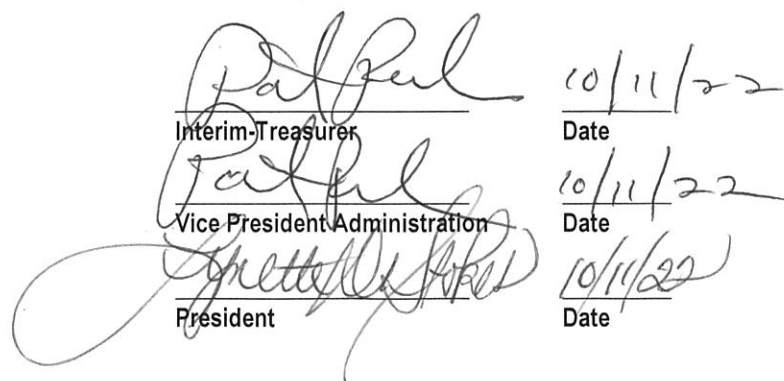 10/11/22
Interim-Treasurer Date
10/11/22
Vice President Administration Date
Lynette D. Stokes 10/11/22
President Date